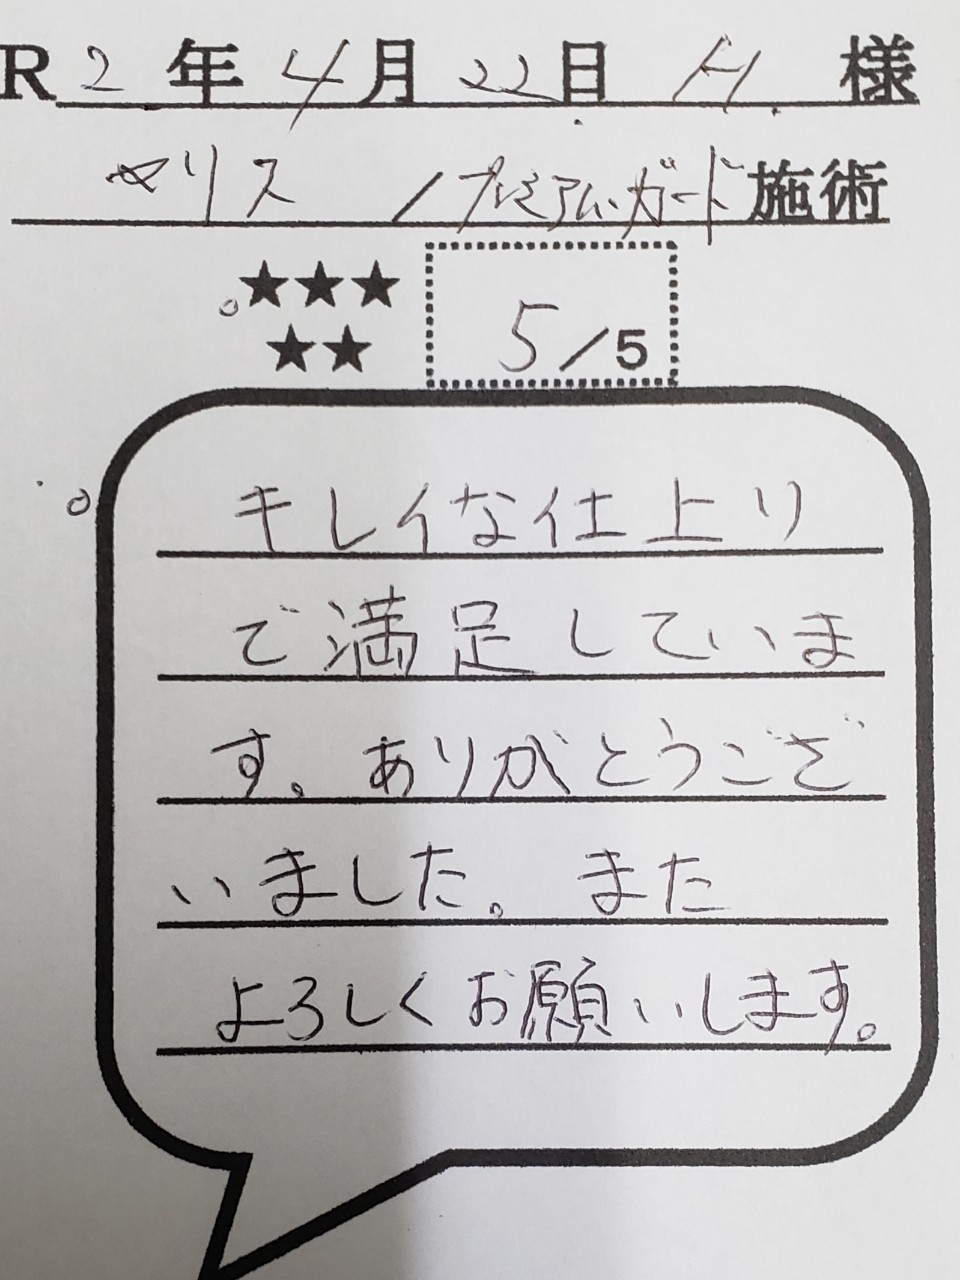 R2年4月22日 H.様
ヤリス /プレミアムガード施術
★★★
★★
5/5
キレイな仕上り
で満足していま
す。ありがとうござ
いました。また
よろしくお願いします。